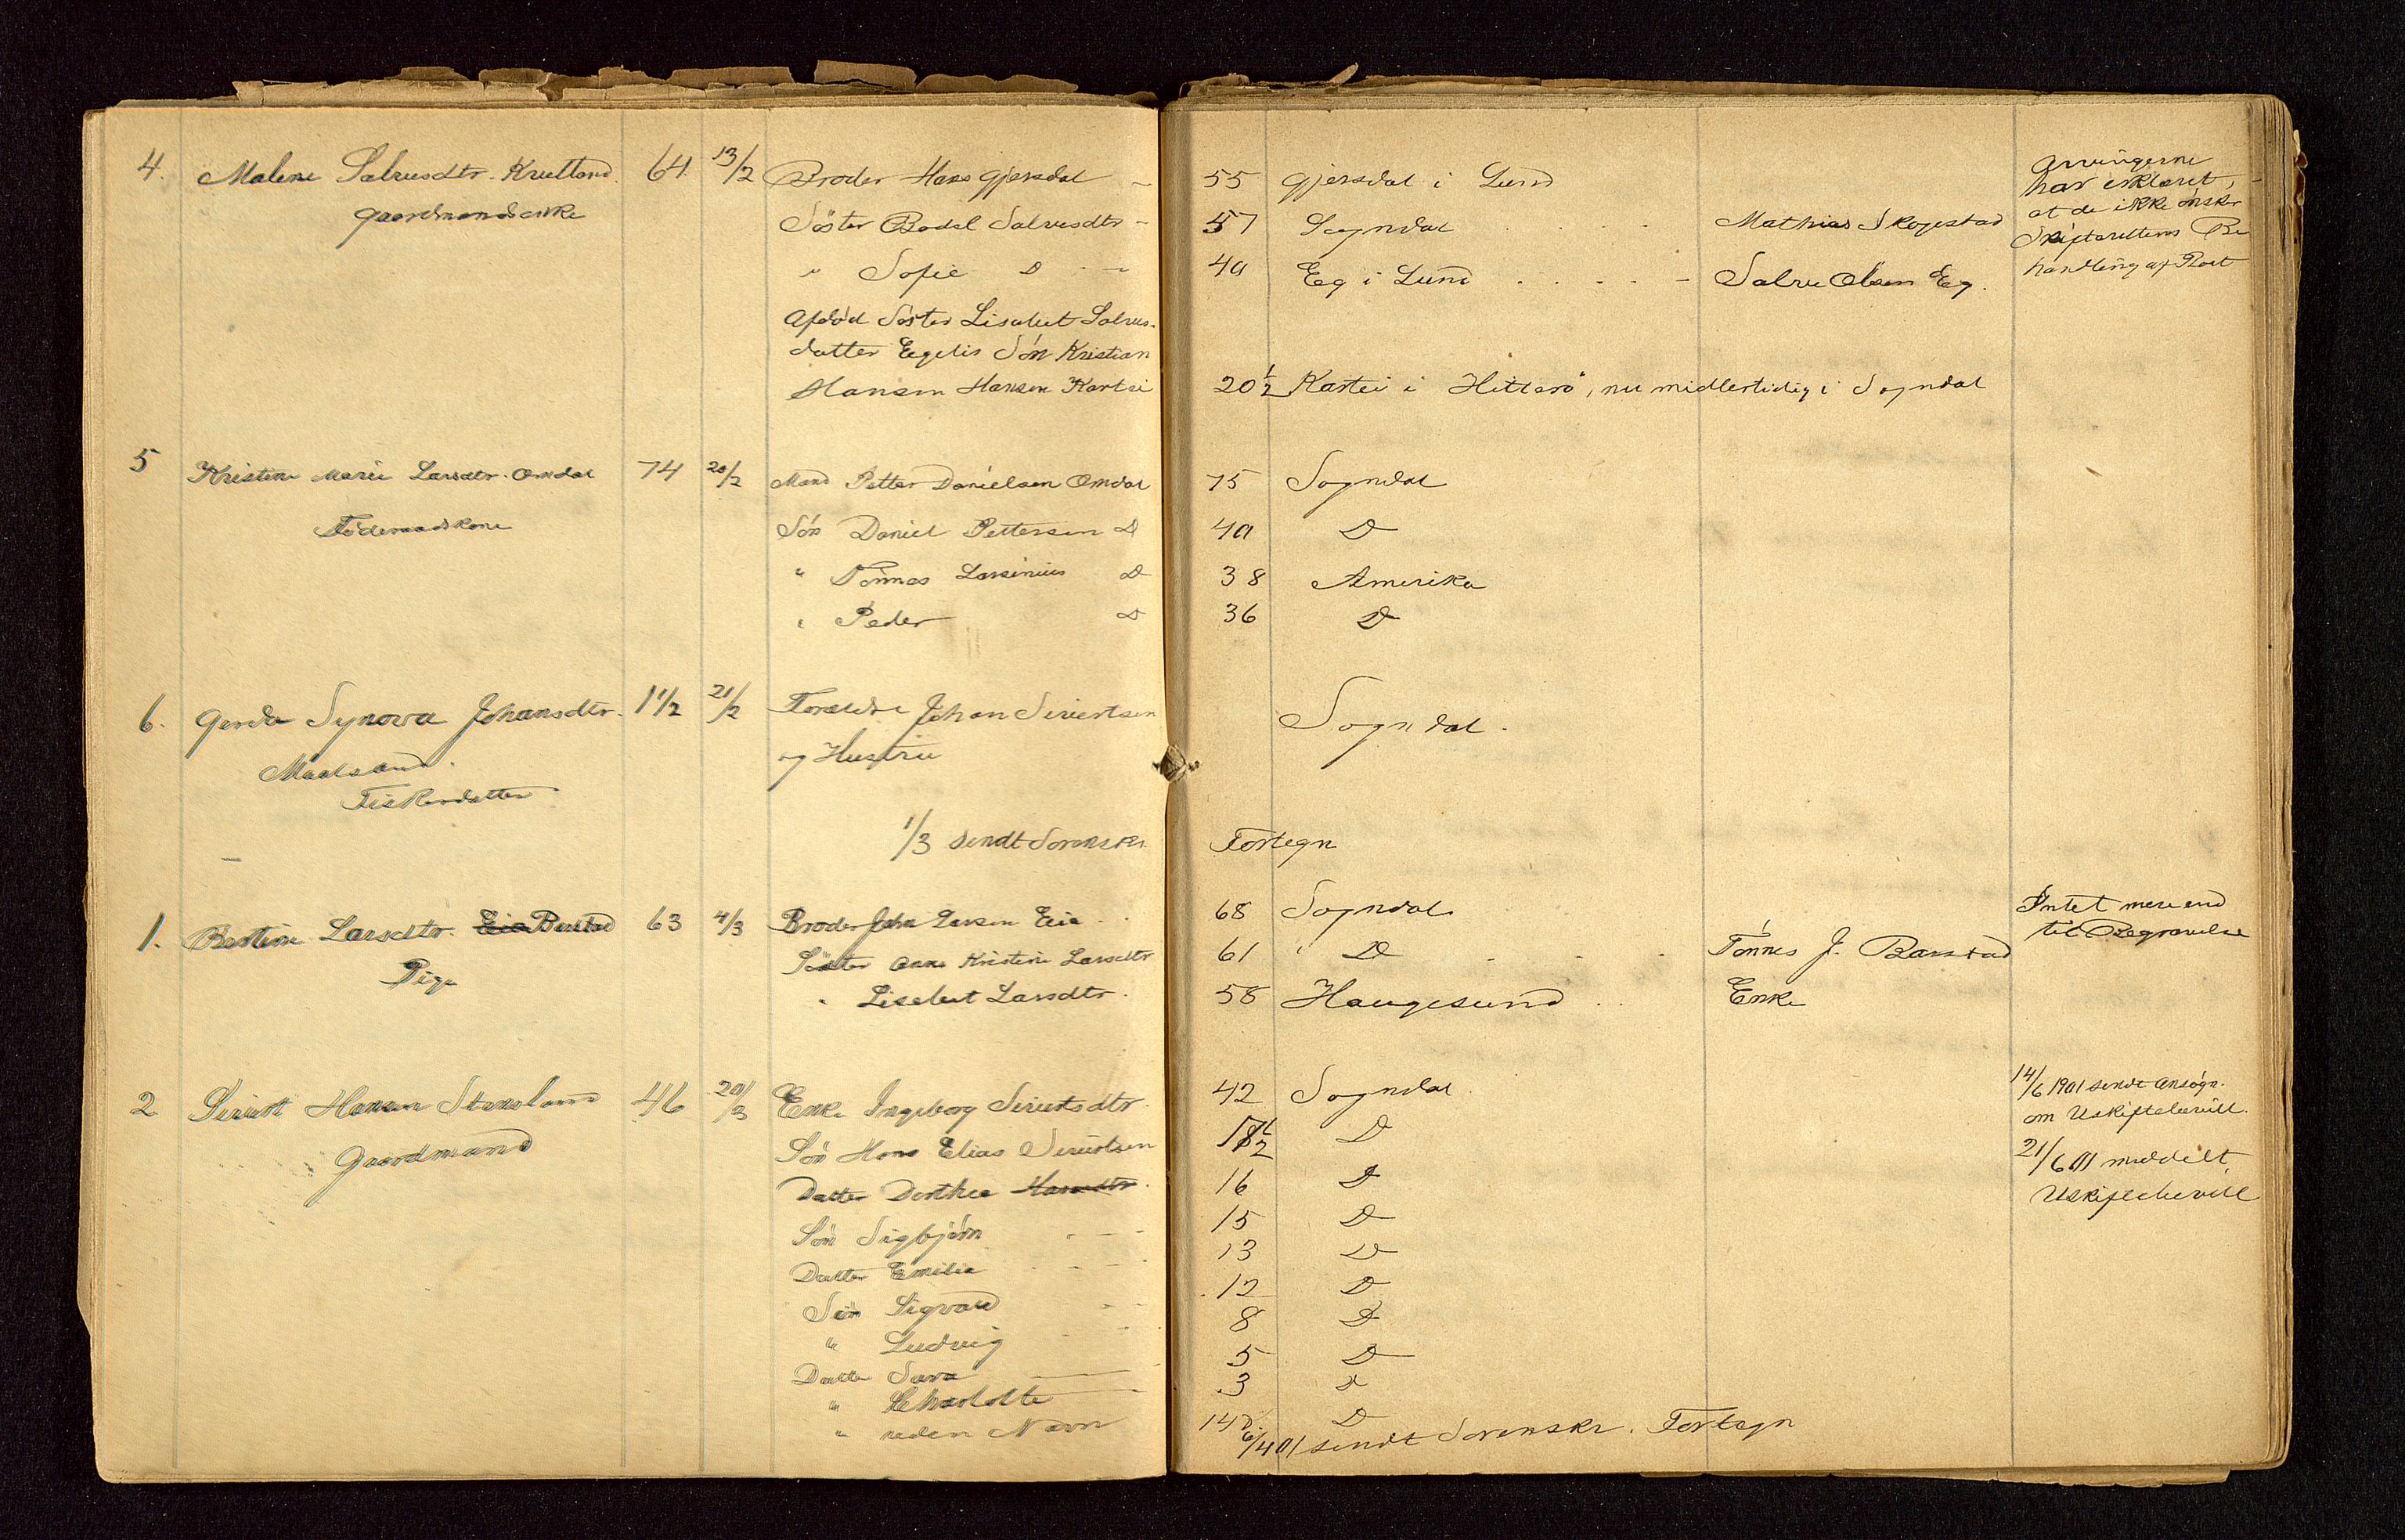 4. Malene Salvesdtr. Kvelland. 64 13/2 Broder Hans Gjersdal — 55 Gjersdal i Lund
Gaardmandsenke Söster Bodel Salvesdtr — 57 Sogndal . . . . Mathias Skogestad
" Sofie D — 49 Eg i Lund . . . . — Salve Olsen Eg.
Arvingerne
har erklæret,
at de ikke ønsker
Skifterettens Be
handling af Boet
Afdöd Söster Lisabet Salves-
datter Eegelis Sön Kristian
Hansen Hansen Kartei 20 1/2 Kartei i Hitterö, nu midlertidig i Sogndal
5 Kristine Marie Larsdtr. Omdal 74 20/2 Mand Petter Danielsen Omdal 75 Sogndal
Föderaadskone Sön Daniel Pettersen D 49 D
" Tönnes Larsinius D 38 Amerika
" Peder D 36 D
6. Gerda Synova Johansdtr. 1 1/2 21/2 Forældre Johan Sivertsen Sogndal.
Maalsand. og Hustru
Fiskerdatter
1/3 sendt Sorenskr. Fortegn
1. Bertine Larsdtr. Eia Barstad 63 4/3 Broder John Larsen Eia . . 68 Sogndal. Intet mere end
Pige Söster Anne Kristine Larsdtr 61 " D . . . Tönnes J. Barstad til Begravelse
" Lisabet Larsdtr. 58 Haugesund . . Enke
2 Sivert Hansen Stensland 46 20/3 Enke Ingeborg Sivertsdtr. 42 Sogndal
Gaardmand Sön Hans Elias Sivertsen 18 1/2 D
Datter Dorthea Hansdtr. 16 D
14/6 1901 sendt Ansögn.
om Uskiftebevill.
21/6 01 meddelt
Uskiftebevill
Sön Sigbjörn . — - 15 D
Datter Emilie . - — - 13 D
Sön Sigvard - - 12 D
" Ludvig - - 8 D
Datter Sara — 5 D
" Scharlotte — 3 D
" uden Navn 14 D. D
6/4 01 sendt Sorenskr. Fortegn